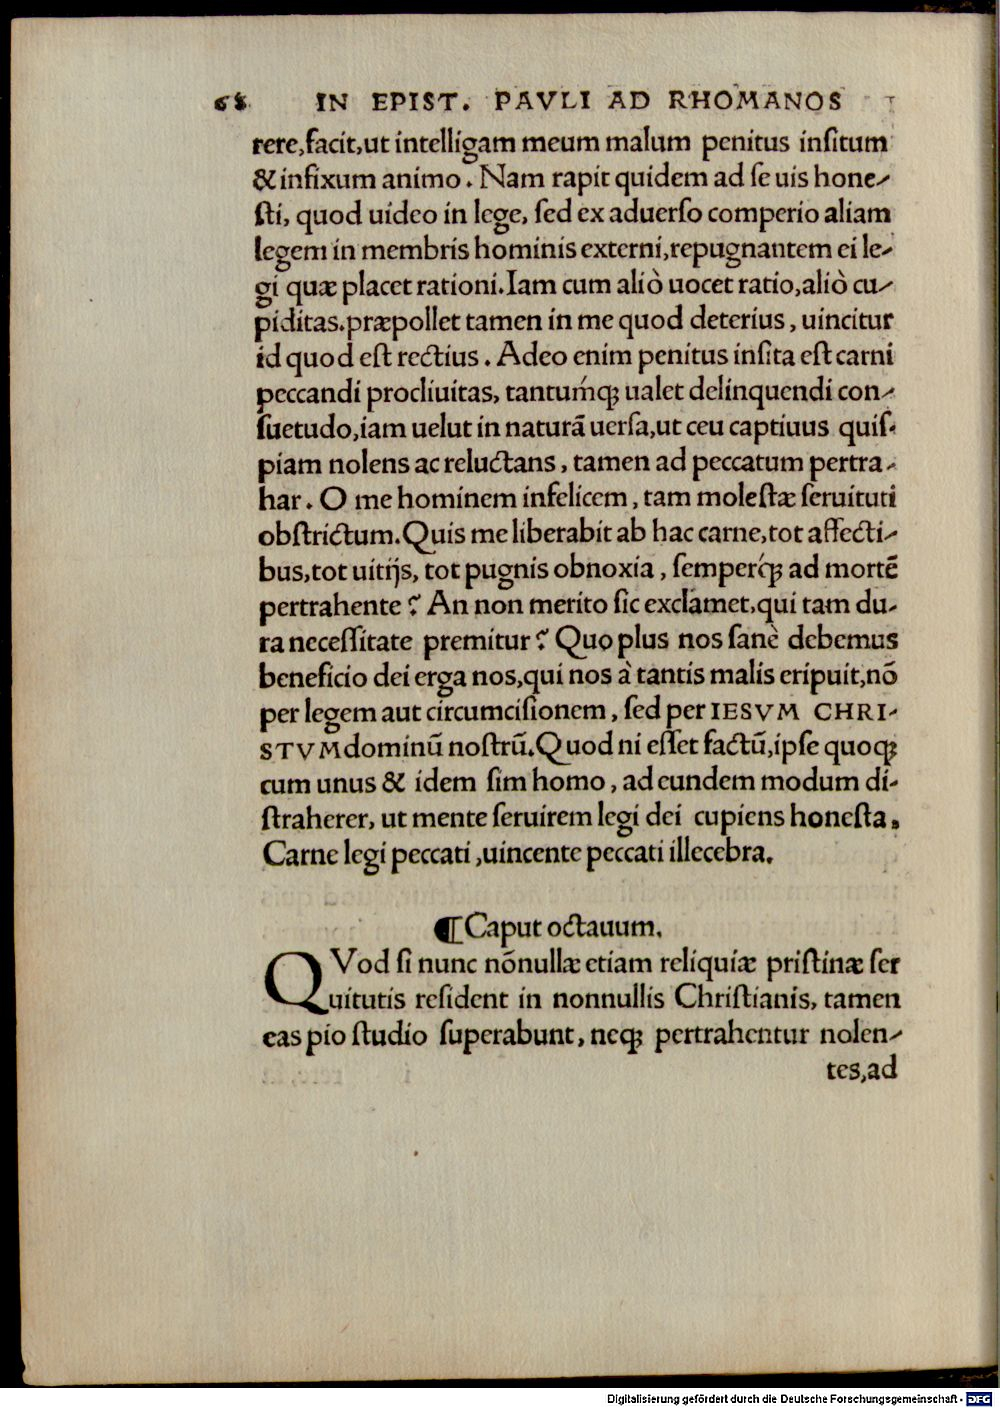 68 IN EPIST. PAVLI AD RHOMANOS
rere,facit,ut intelligam meum malum penitus inſitum
& infixum animo. Nam rapit quidem ad ſe uis hone-
ſti, quod uideo in lege, ſed ex aduerſo comperio aliam
legem in membris hominis externi,repugnantem ei le-
gi quæ placet rationi.Iam cum aliò uocet ratio,aliò cu-
piditas.præpollet tamen in me quod deterius, uincitur
id quod eſt rectius. Adeo enim penitus inſita eſt carni
peccandi procliuitas, tantumq́ꝫ ualet delinquendi con-
ſuetudo,iam uelut in naturã uerſa,ut ceu captiuus quiſ-
piam nolens ac reluctans, tamen ad peccatum pertra-
har. O me hominem infelicem, tam moleſtæ ſeruituti
obſtrictum.Quis me liberabit ab hac carne,tot affecti-
bus,tot uitijs, tot pugnis obnoxia, ſemperq́ꝫ ad mortẽ
pertrahente? An non merito ſic exclamet,qui tam du-
ra neceſſitate premitur? Quo plus nos ſanè debemus
beneficio dei erga nos,qui nos à tantis malis eripuit,nõ
per legem aut circumciſionem, ſed per IESVM CHRI-
STVM dominũ noſtrũ.Quod ni eſſet factũ,ipſe quoqꝫ
cum unus & idem ſim homo, ad eundem modum di-
ſtraherer, ut mente ſeruirem legi dei cupiens honeſta,
Carne legi peccati,uincente peccati illecebra.
¶Caput octauum.
QVod ſi nunc nõnullæ etiam reliquiæ priſtinæ ſer
uitutis reſident in nonnullis Chriſtianis, tamen
eas pio ſtudio ſuperabunt, neqꝫ pertrahentur nolen-
tes,ad
Digitalisierung gefördert durch die Deutsche Forschungsgemeinschaft - DFG